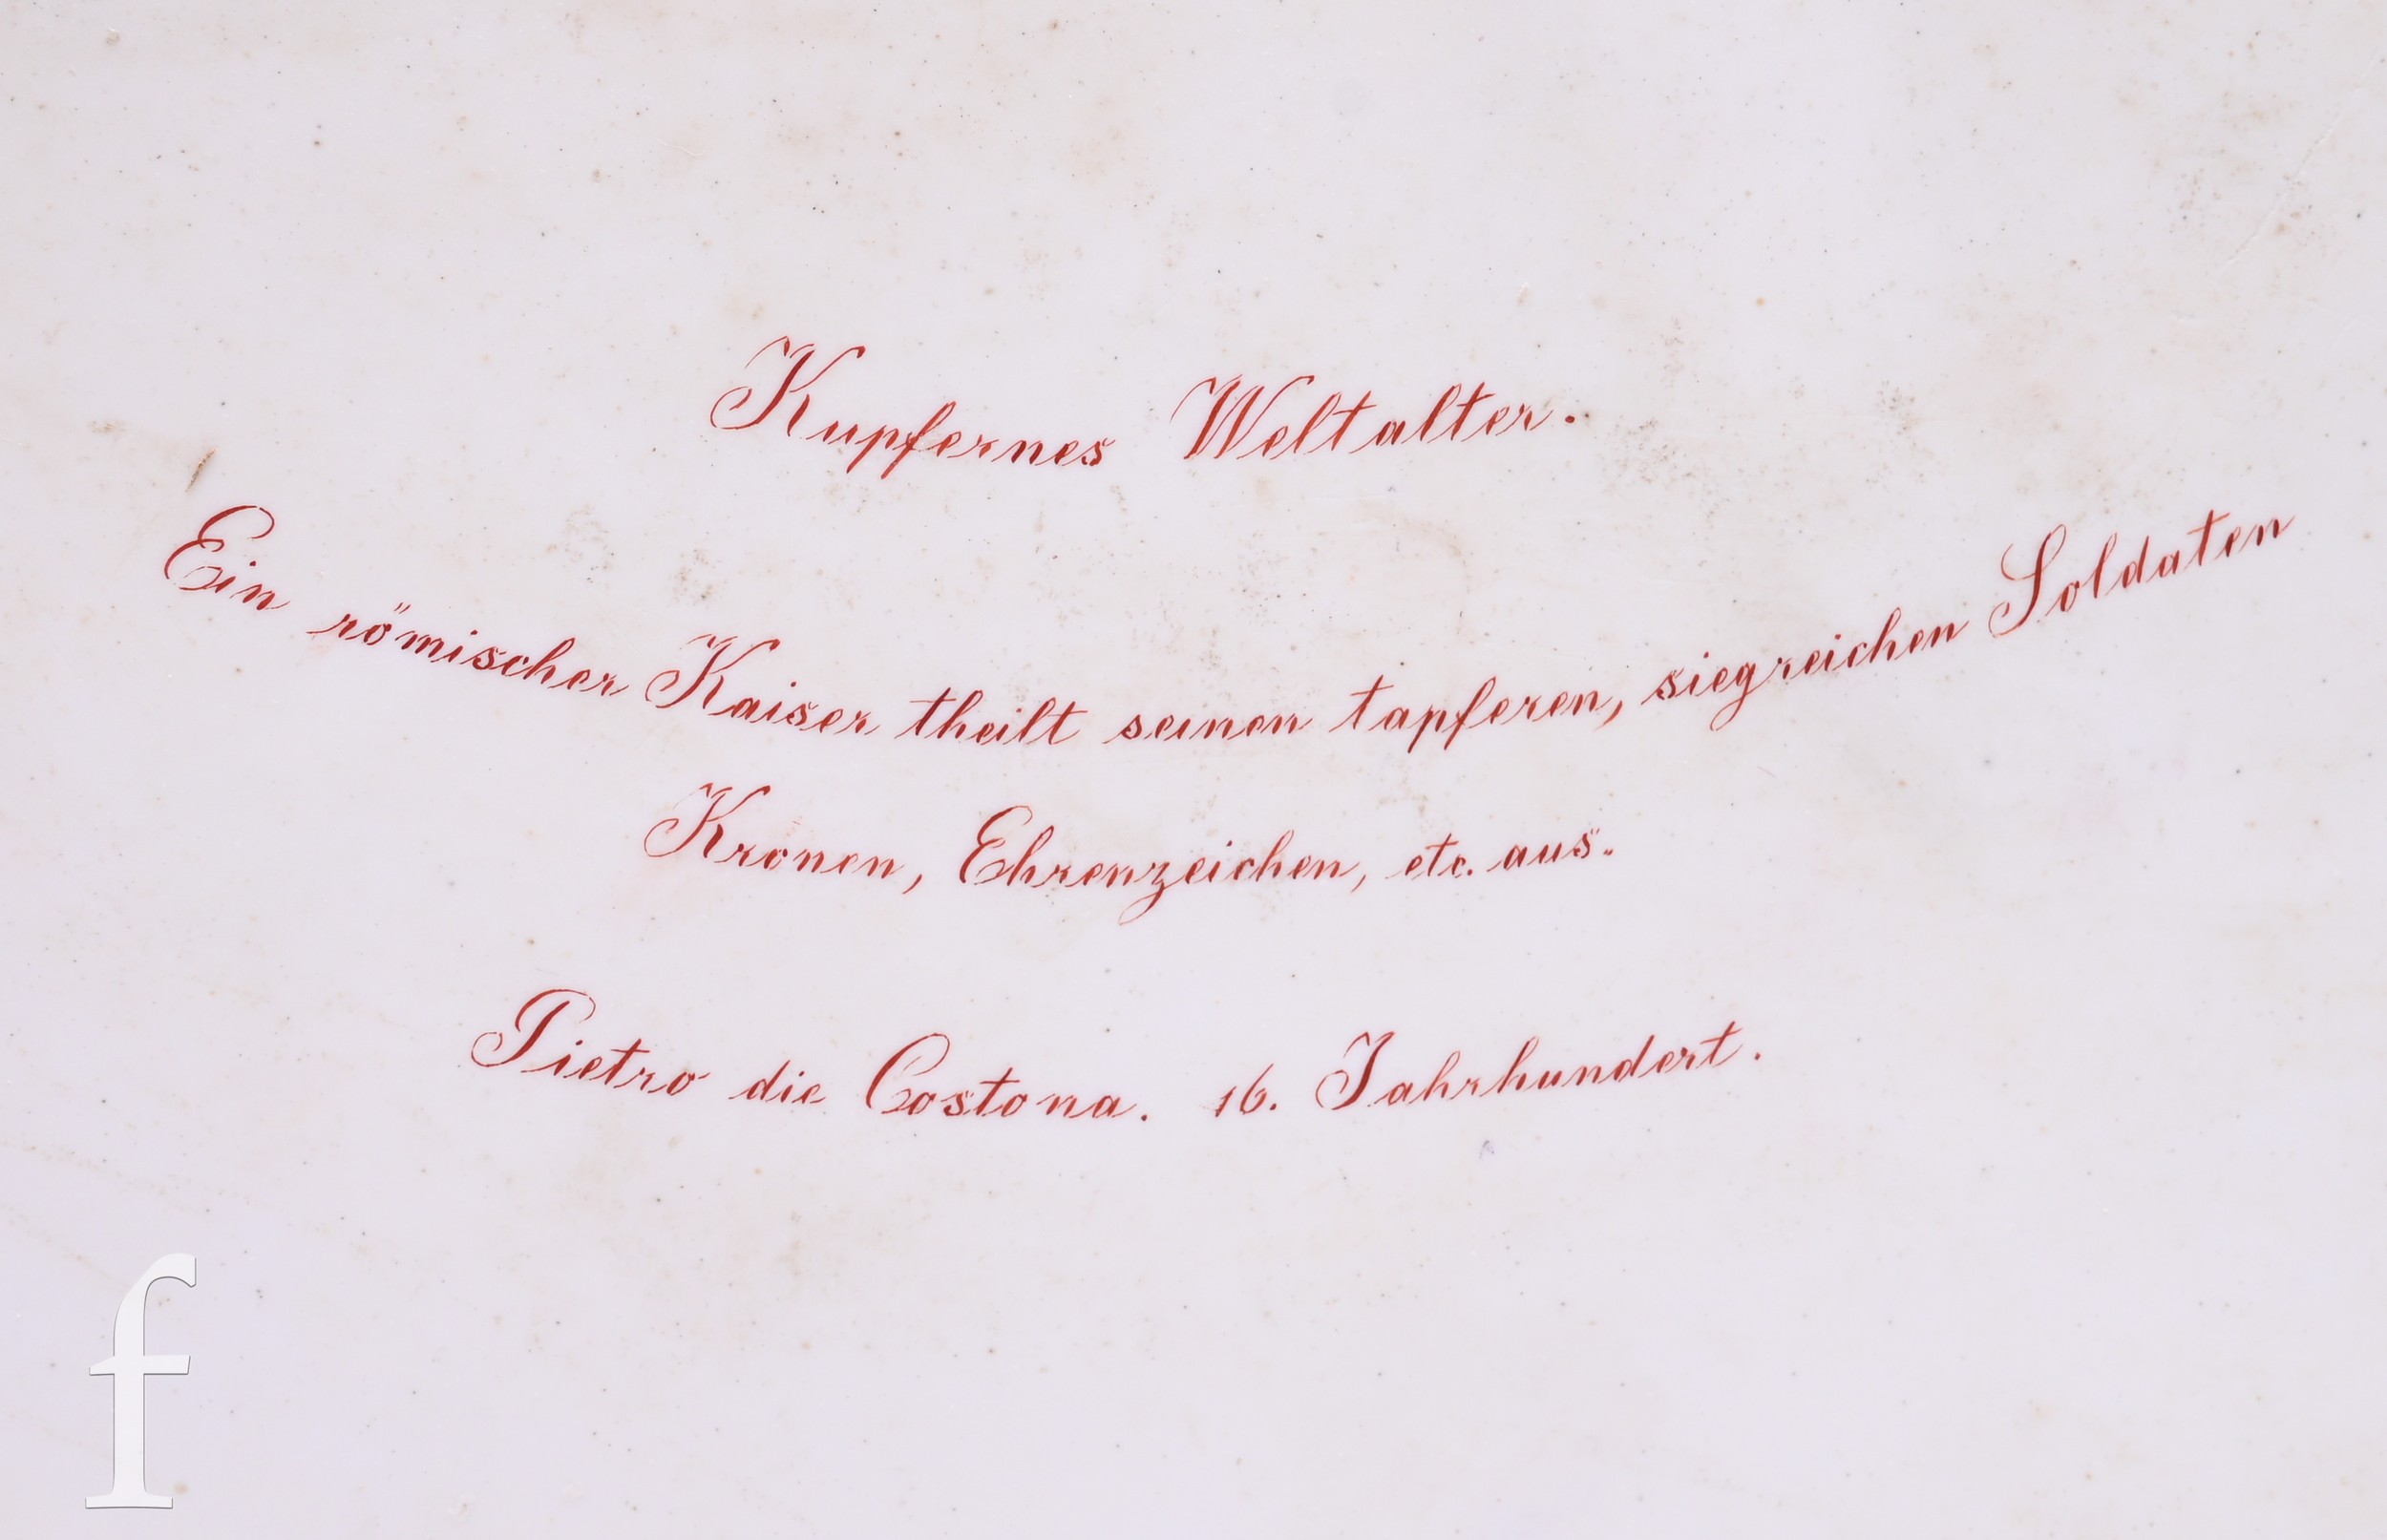 Kupfernes Weltalter.
Ein römischer Kaiser theilt seinen tapferen, siegreichen Soldaten
Kronen, Ehrenzeichen, etc. aus.
Pietro die Costona. 16. Jahrhundert.
f